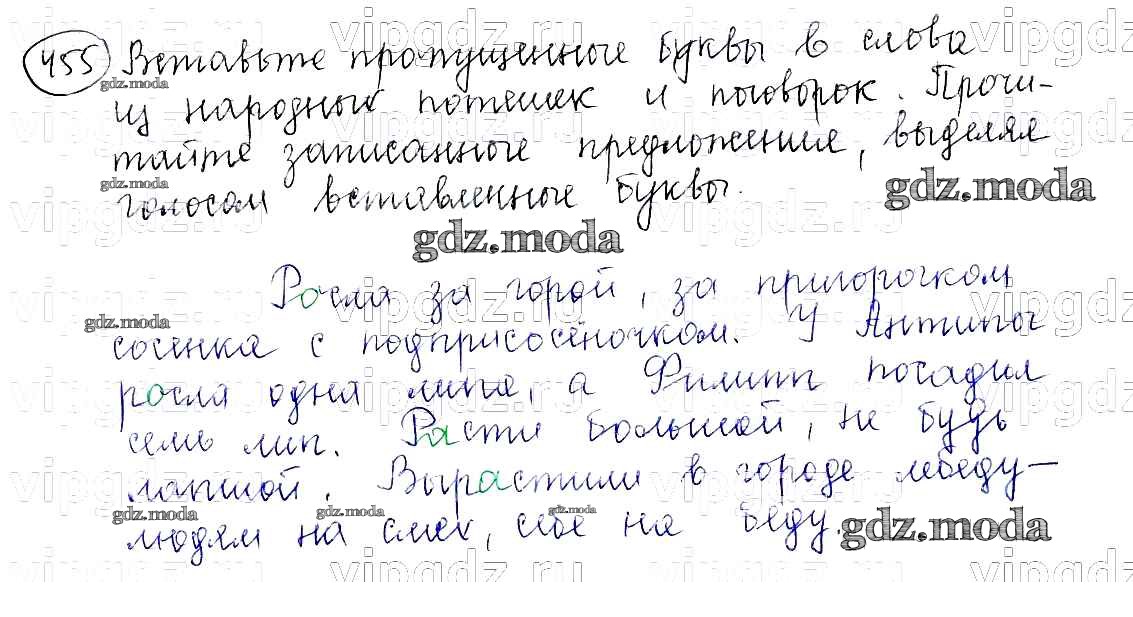 455 Вставьте пропущенные буквы в слова
из народных потешек и поговорок. Прочи-
тайте записанные предложения, выделяя
голосом вставленные буквы.
Росла за горой, за пригорочком
сосенка с подприсосёночком. У Антипоч
росла одна липа, а Филипп посадил
семь лип. Расти большой, не будь
лапшой. Вырастили в городе лебеду -
людям на смех, себе на беду.
gdz.moda
vipgdz.ru